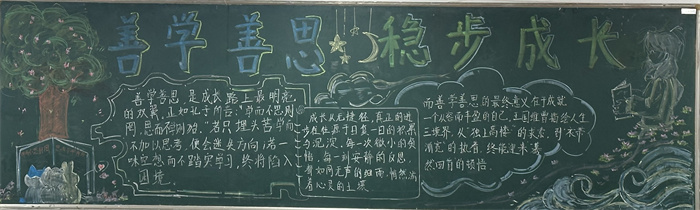 善学善思 稳步成长
善学善思，是成长路上最明亮
的双翼，正如孔子所言：“学而不思则
罔，思而不学则殆。”若只埋头苦学而
不加以思考，便会迷失方向；若一
味空想而不踏实学习，终将陷入
困境。
成长从无捷径，真正的进
步往往源于日复一日的积累
与沉淀，每一次微小的突
破，每一刻安静的反思，
都如同无声的细雨，悄然滋
养着心灵的土壤。
而善学善思的最终意义在于成就
一个从容而丰盈的自己，王国维曾喻治学人生
三境界，从“独上高楼”的求索，到“衣带
渐宽”的执着，终能迎来蓦
然回首的顿悟。